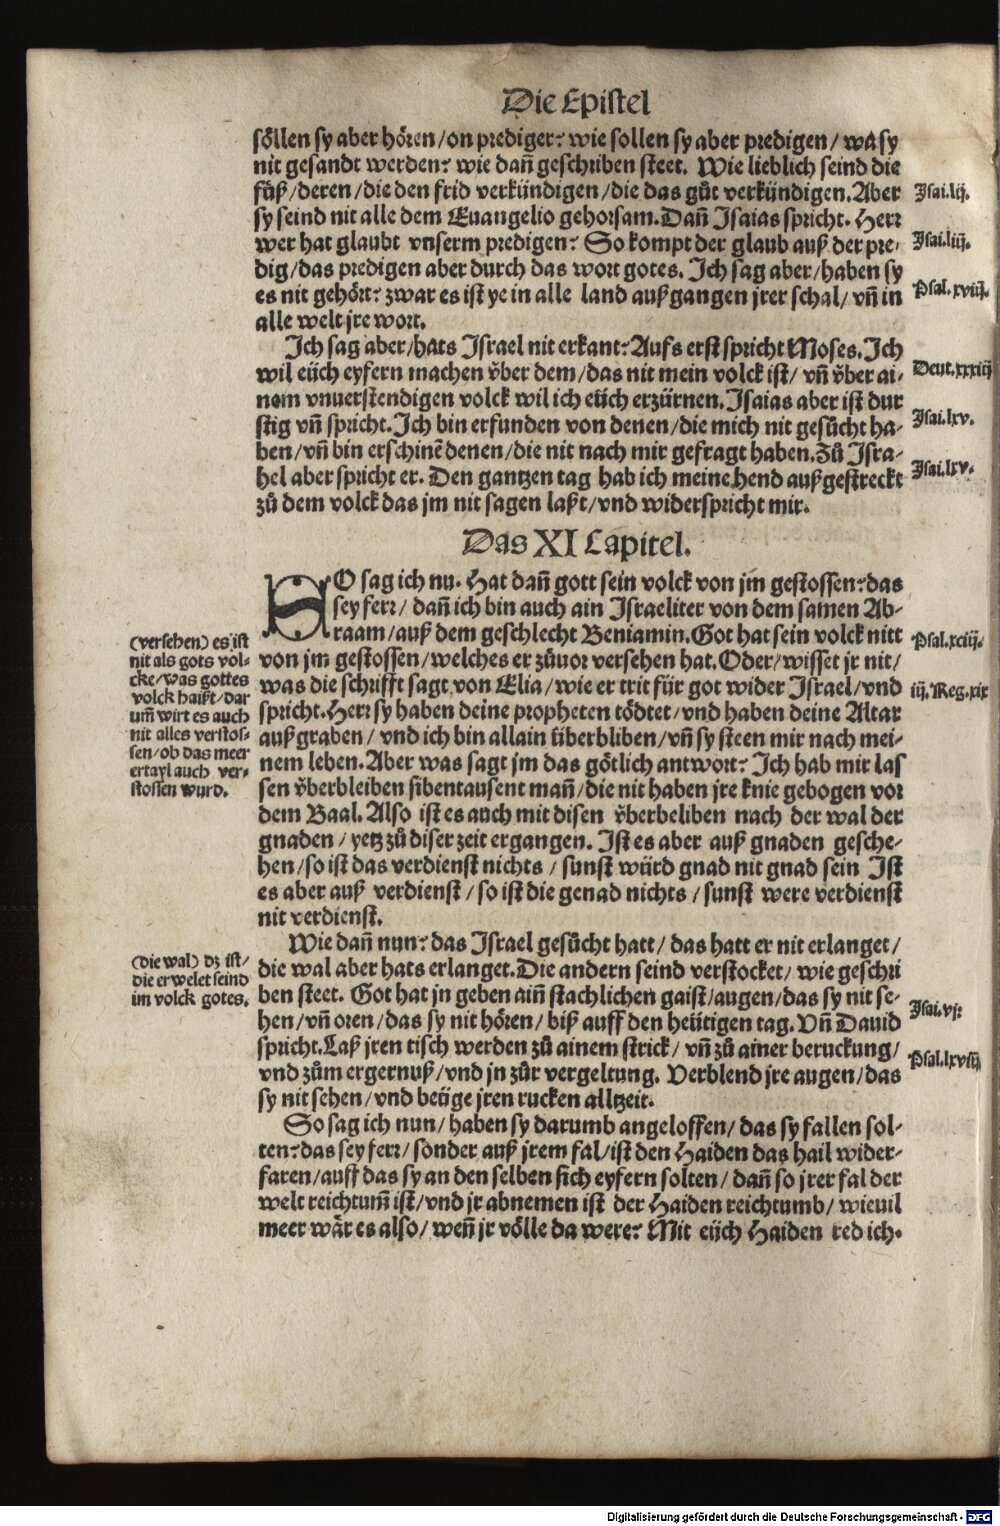 Die Epistel
söllen sy aber hören/on prediger? wie sollen sy aber predigen/ wa sy
nit gesandt werden? wie dañ geschriben steet. Wie lieblich seind die
füß/deren/die den frid verkündigen/die das gůt verkündigen. Aber
Isai.lij.
sy seind nit alle dem Euangelio gehorsam. Dañ Isaias spricht. Herr
wer hat glaubt vnserm predigen? So kompt der glaub auß der pre-
Isai.liij.
dig/das predigen aber durch das wort gotes. Ich sag aber/haben sy
es nit gehört? zwar es ist ye in alle land außgangen jrer schal/ vñ in
Psal.xviij.
alle welt jre wort.
Ich sag aber/hats Israel nit erkant? Aufs erst spricht Moses. Ich
wil eüch eyfern machen v̈ber dem/das nit mein volck ist/ vñ v̈ber ai-
Deut.xxxij
nem vnuerstendigen volck wil ich eüch erzürnen. Isaias aber ist dur
stig vñ spricht. Ich bin erfunden von denen/die mich nit gesůcht ha-
Isai.lxv.
ben/vñ bin erschinē denen/die nit nach mir gefragt haben. Zů Isra-
hel aber spricht er. Den gantzen tag hab ich meine hend außgestreckt
Isai.lxv.
zů dem volck das jm nit sagen laßt/vnd widerspricht mir.
Das XI Capitel.
SO sag ich nu. Hat dañ gott sein volck von jm gestossen? das
sey ferr/ dañ ich bin auch ain Israeliter von dem samen Ab-
raam/auß dem geschlecht Beniamin. Got hat sein volck nitt
Psal.xciij.
von jm gestossen/welches er zůuor versehen hat. Oder/wisset jr nit/
was die schrifft sagt von Elia/wie er trit für got wider Israel/vnd
iij.Reg.xix
spricht. Herr sy haben deine propheten tödtet/vnd haben deine Altar
außgraben/ vnd ich bin allain überbliben/vñ sy steen mir nach mei-
nem leben. Aber was sagt jm das götlich antwort? Ich hab mir las
sen v̈berbleiben sibentausent mañ/die nit haben jre knie gebogen vor
(versehen) es ist
nit als gots vol-
cke/was gottes
volck haißt/dar
um̃ wirt es auch
nit alles verstos-
sen/ob das meer
ertayl auch ver-
stossen wurd.
dem Baal. Also ist es auch mit disen v̈berbeliben nach der wal der
gnaden/ yetz zů diser zeit ergangen. Ist es aber auß gnaden gesche-
hen/so ist das verdienst nichts/ sunst würd gnad nit gnad sein Ist
es aber auß verdienst/so ist die genad nichts/sunst were verdienst
nit verdienst.
Wie dañ nun? das Israel gesůcht hatt/das hatt er nit erlanget/
die wal aber hats erlanget. Die andern seind verstocket/ wie geschri
(die wal) dz ist/
die erwelet seind
im volck gotes.
ben steet. Got hat jn geben aiñ stachlichen gaist/augen/das sy nit se-
Isai.vj:
hen/vñ oren/das sy nit hören/ biß auff den heütigen tag. Vñ Dauid
spricht. Laß jren tisch werden zů ainem strick/ vñ zů ainer beruckung/
Psal.lxviij
vnd zům ergernuß/vnd jn zůr vergeltung. Verblend jre augen/das
sy nit sehen/vnd betüge jren rucken alltzeit.
So sag ich nun/haben sy darumb angeloffen/das sy fallen sol-
ten? das sey ferr/sonder auß jrem fal/ist den Haiden das hail wider-
faren/auff das sy an den selben sich eyfern solten/ dañ so jrer fal der
welt reichtum̃ ist/vnd jr abnemen ist der Haiden reichtumb/ wieuil
meer wär es also/weñ jr völle da were? Mit eüch Haiden red ich.
Digitalisierung gefördert durch die Deutsche Forschungsgemeinschaft - DFG